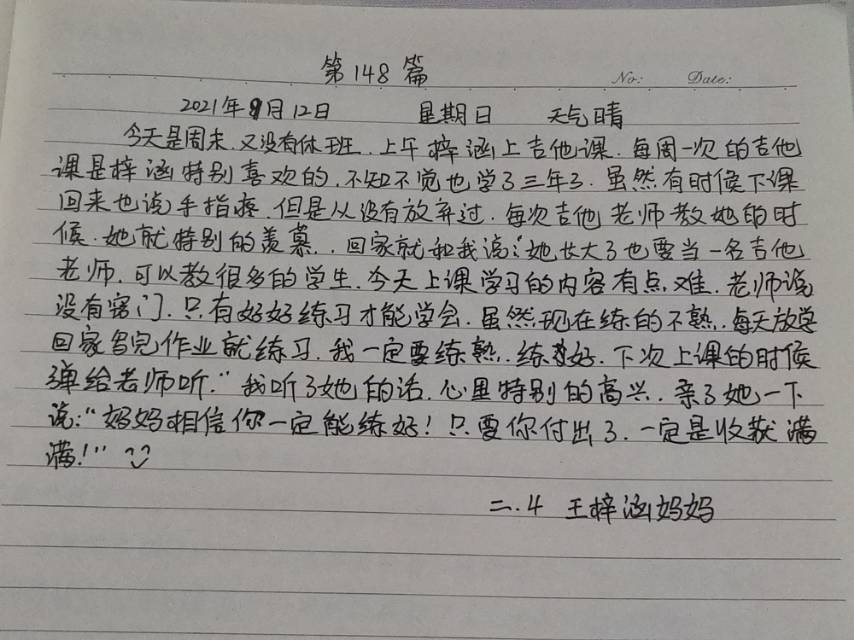 第148篇
No: Date:
2021年9月12日 星期日 天气晴
今天是周末.又没有休班.上午梓涵上吉他课.每周一次的吉他
课是梓涵特别喜欢的.不知不觉也学了三年了.虽然有时候下课
回来也说手指疼.但是从没有放弃过.每次吉他老师教她的时
候.她就特别的羡慕..回家就和我说:"她长大了也要当一名吉他
老师.可以教很多的学生.今天上课学习的内容有点难.老师说
没有窍门.只有好好练习才能学会.虽然现在练的不熟.每天放学
回家写完作业就练习.我一定要练熟.练好.下次上课的时候
弹给老师听."我听了她的话.心里特别的高兴.亲了她一下
说:"妈妈相信你一定能练好!只要你付出了.一定是收获满
满!"
二.4 王梓涵妈妈